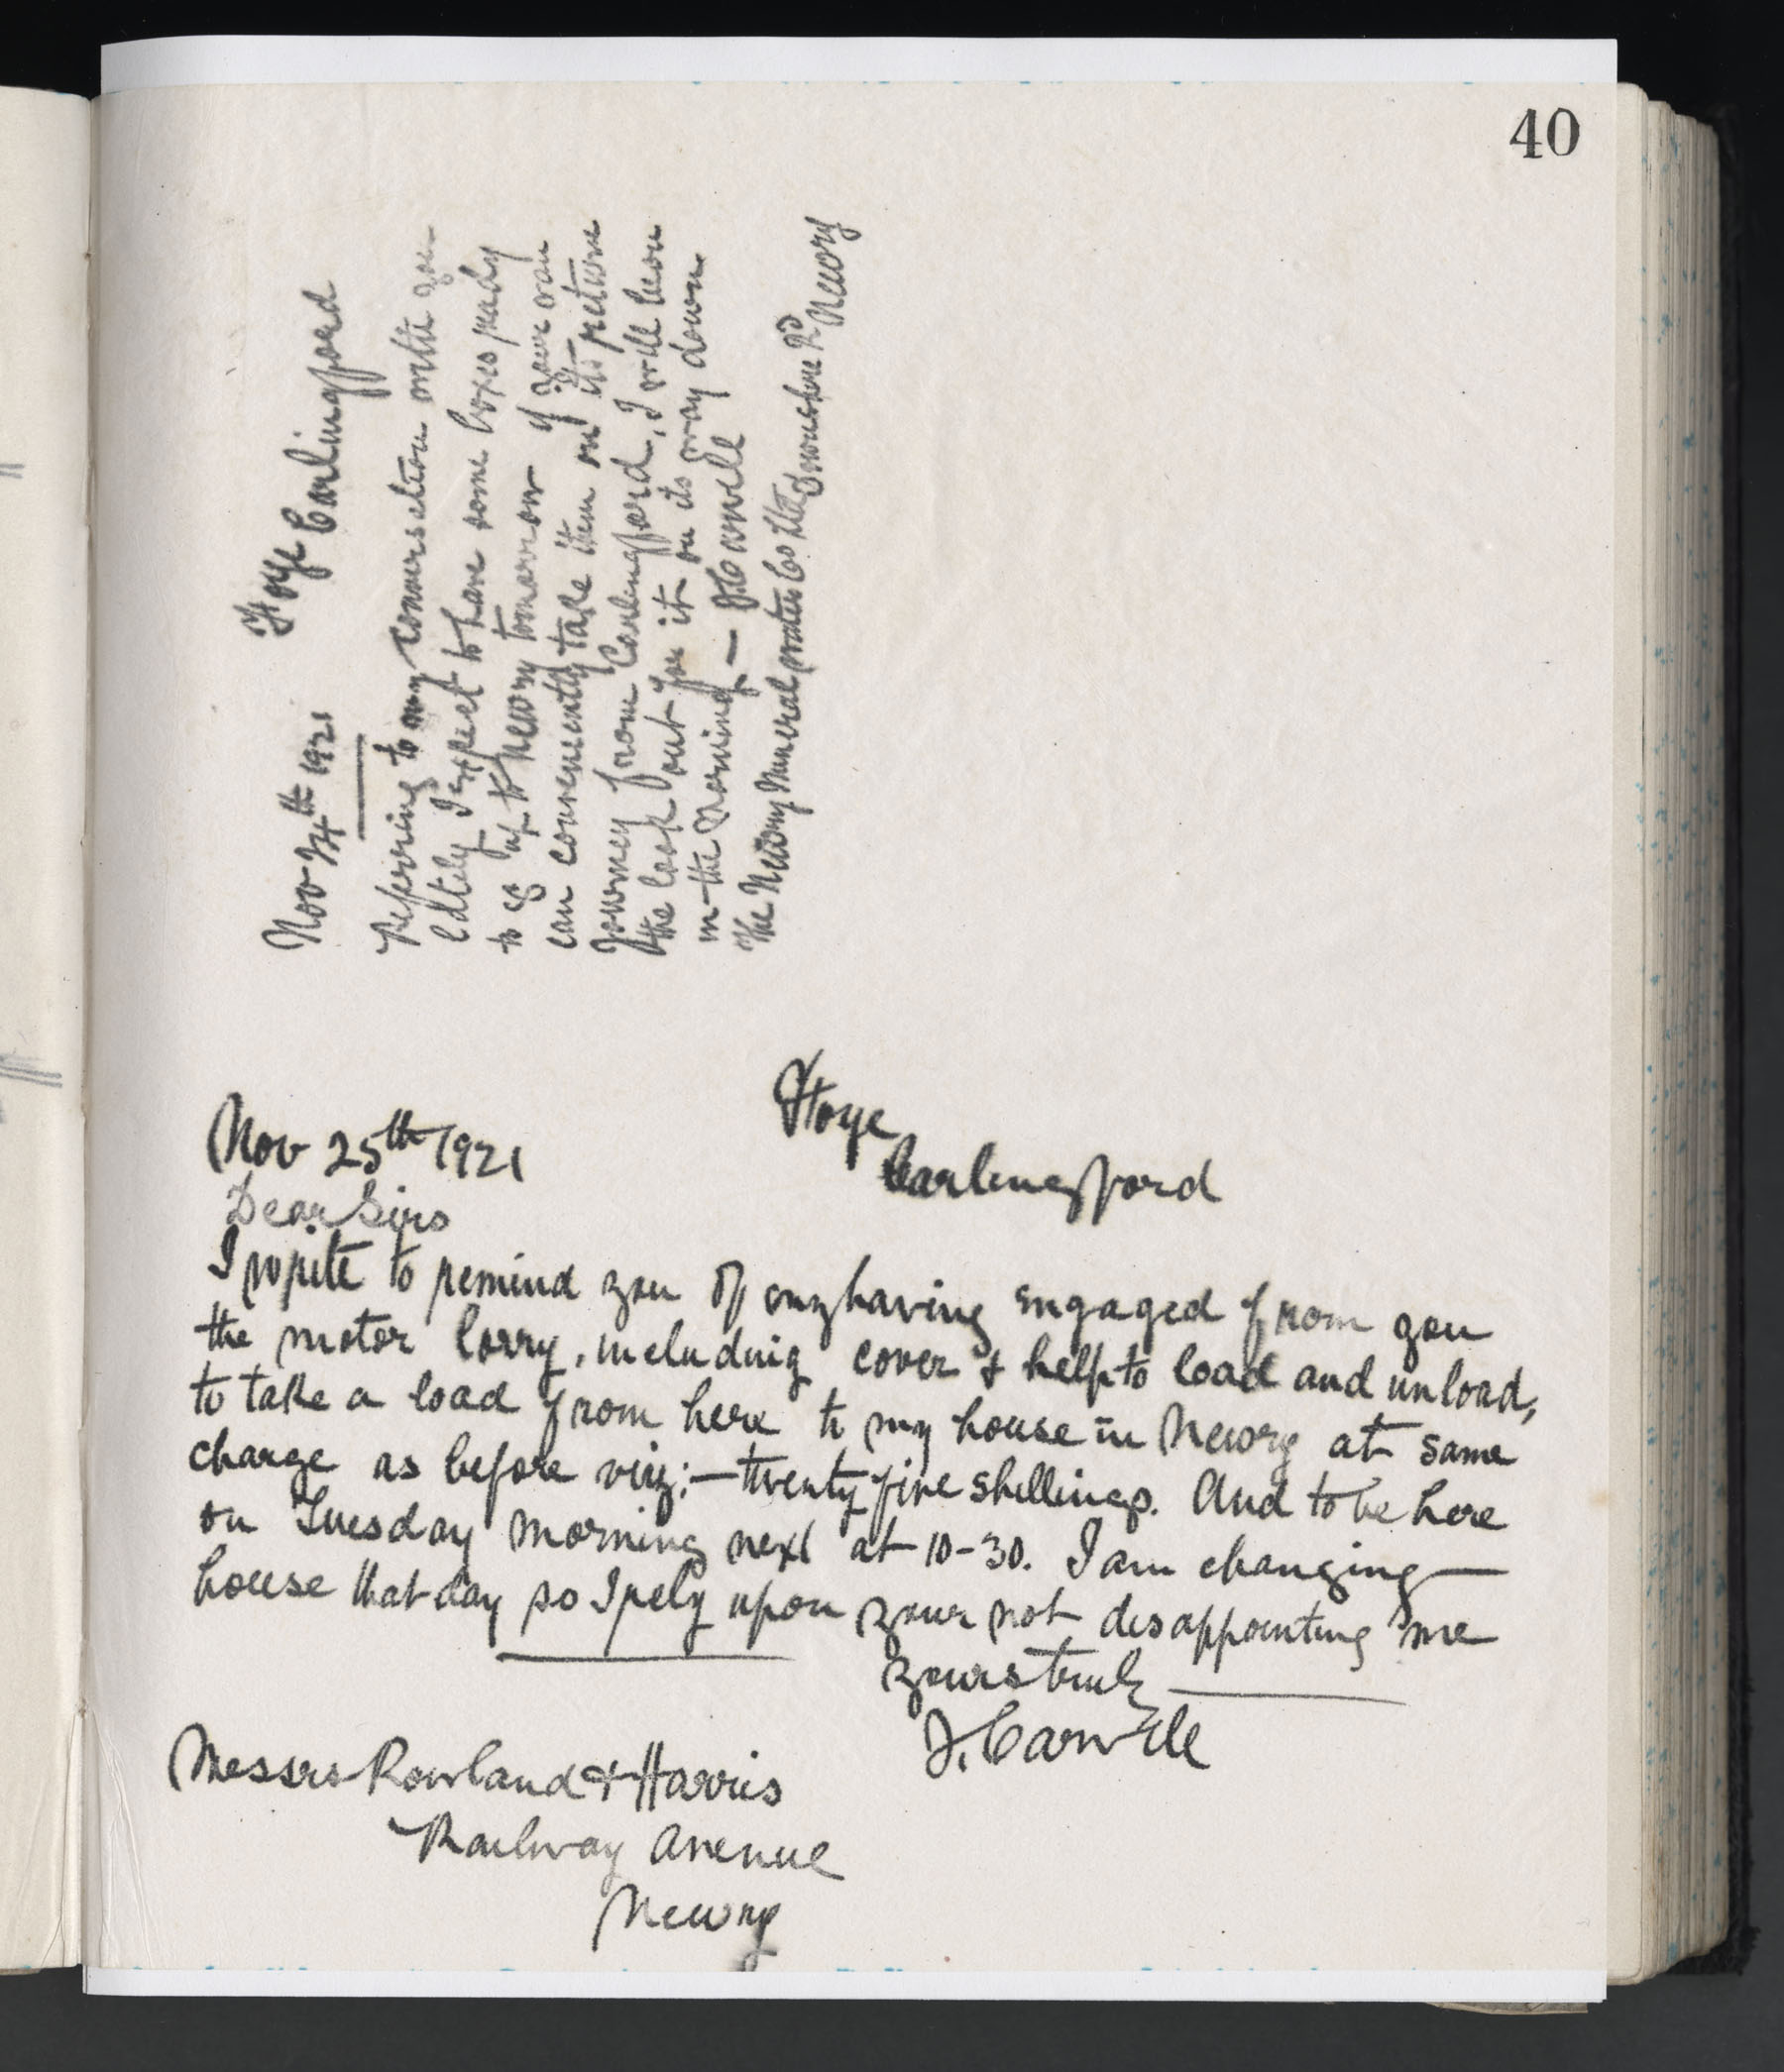 40
Nov 24th 1921 Hoye Carlingford
Referring to my conversation with you
lately I expect to have some boxes ready
to go up to Newry tomorrow if your van
can conveniently take them on its return
journey from Carlingford, I will be on
the look out for it on its way down
in the morning — J Carvill
The Newry Mineral Water Co Ltd Downshire Rd
Newry
Nov 25th 1921
Hoye
Carlingford
Dear Sirs
I write to remind you of my having engaged from you
the motor lorry, including cover & help to load and unload,
to take a load from here to my house in Newry at same
charge as before viz:— twenty five shillings. And to be here
on Tuesday morning next at 10-30. I am changing
house that day so I rely upon your not disappointing me
Yours truly
J. Carvill
Messrs Rowland & Harris
Railway Avenue
Newry